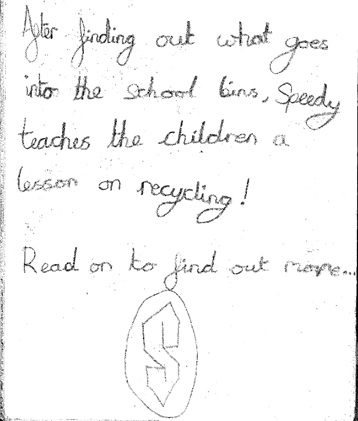 After finding out what goes
into the school bins, Speedy
teaches the children a
lesson on recycling!
Read on to find out more...
S